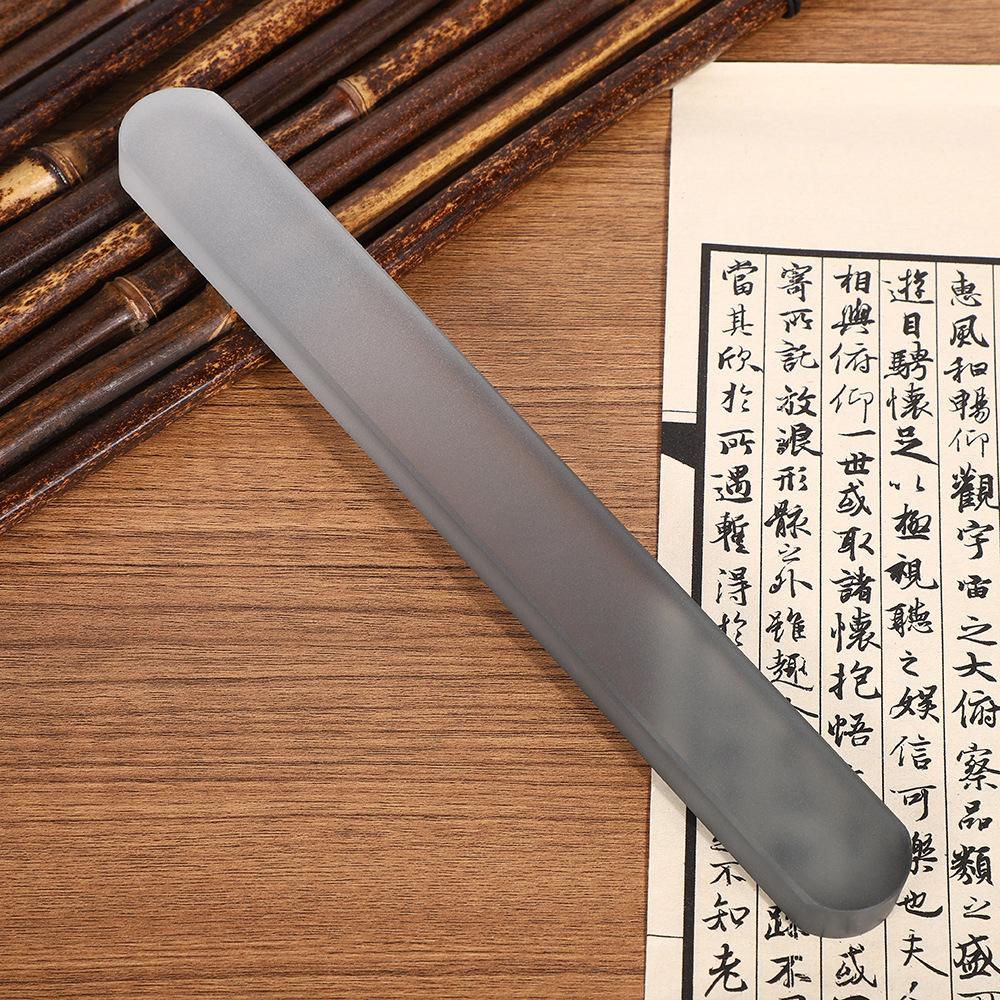 惠風和暢仰觀宇宙之大俯察品類之盛
遊目騁懷足以極視聽之娛信可樂也夫
相與俯仰一世或取諸懷抱悟 或
寄所託放浪形骸之外雖趣 不
當其欣於所遇暫得於 不知老